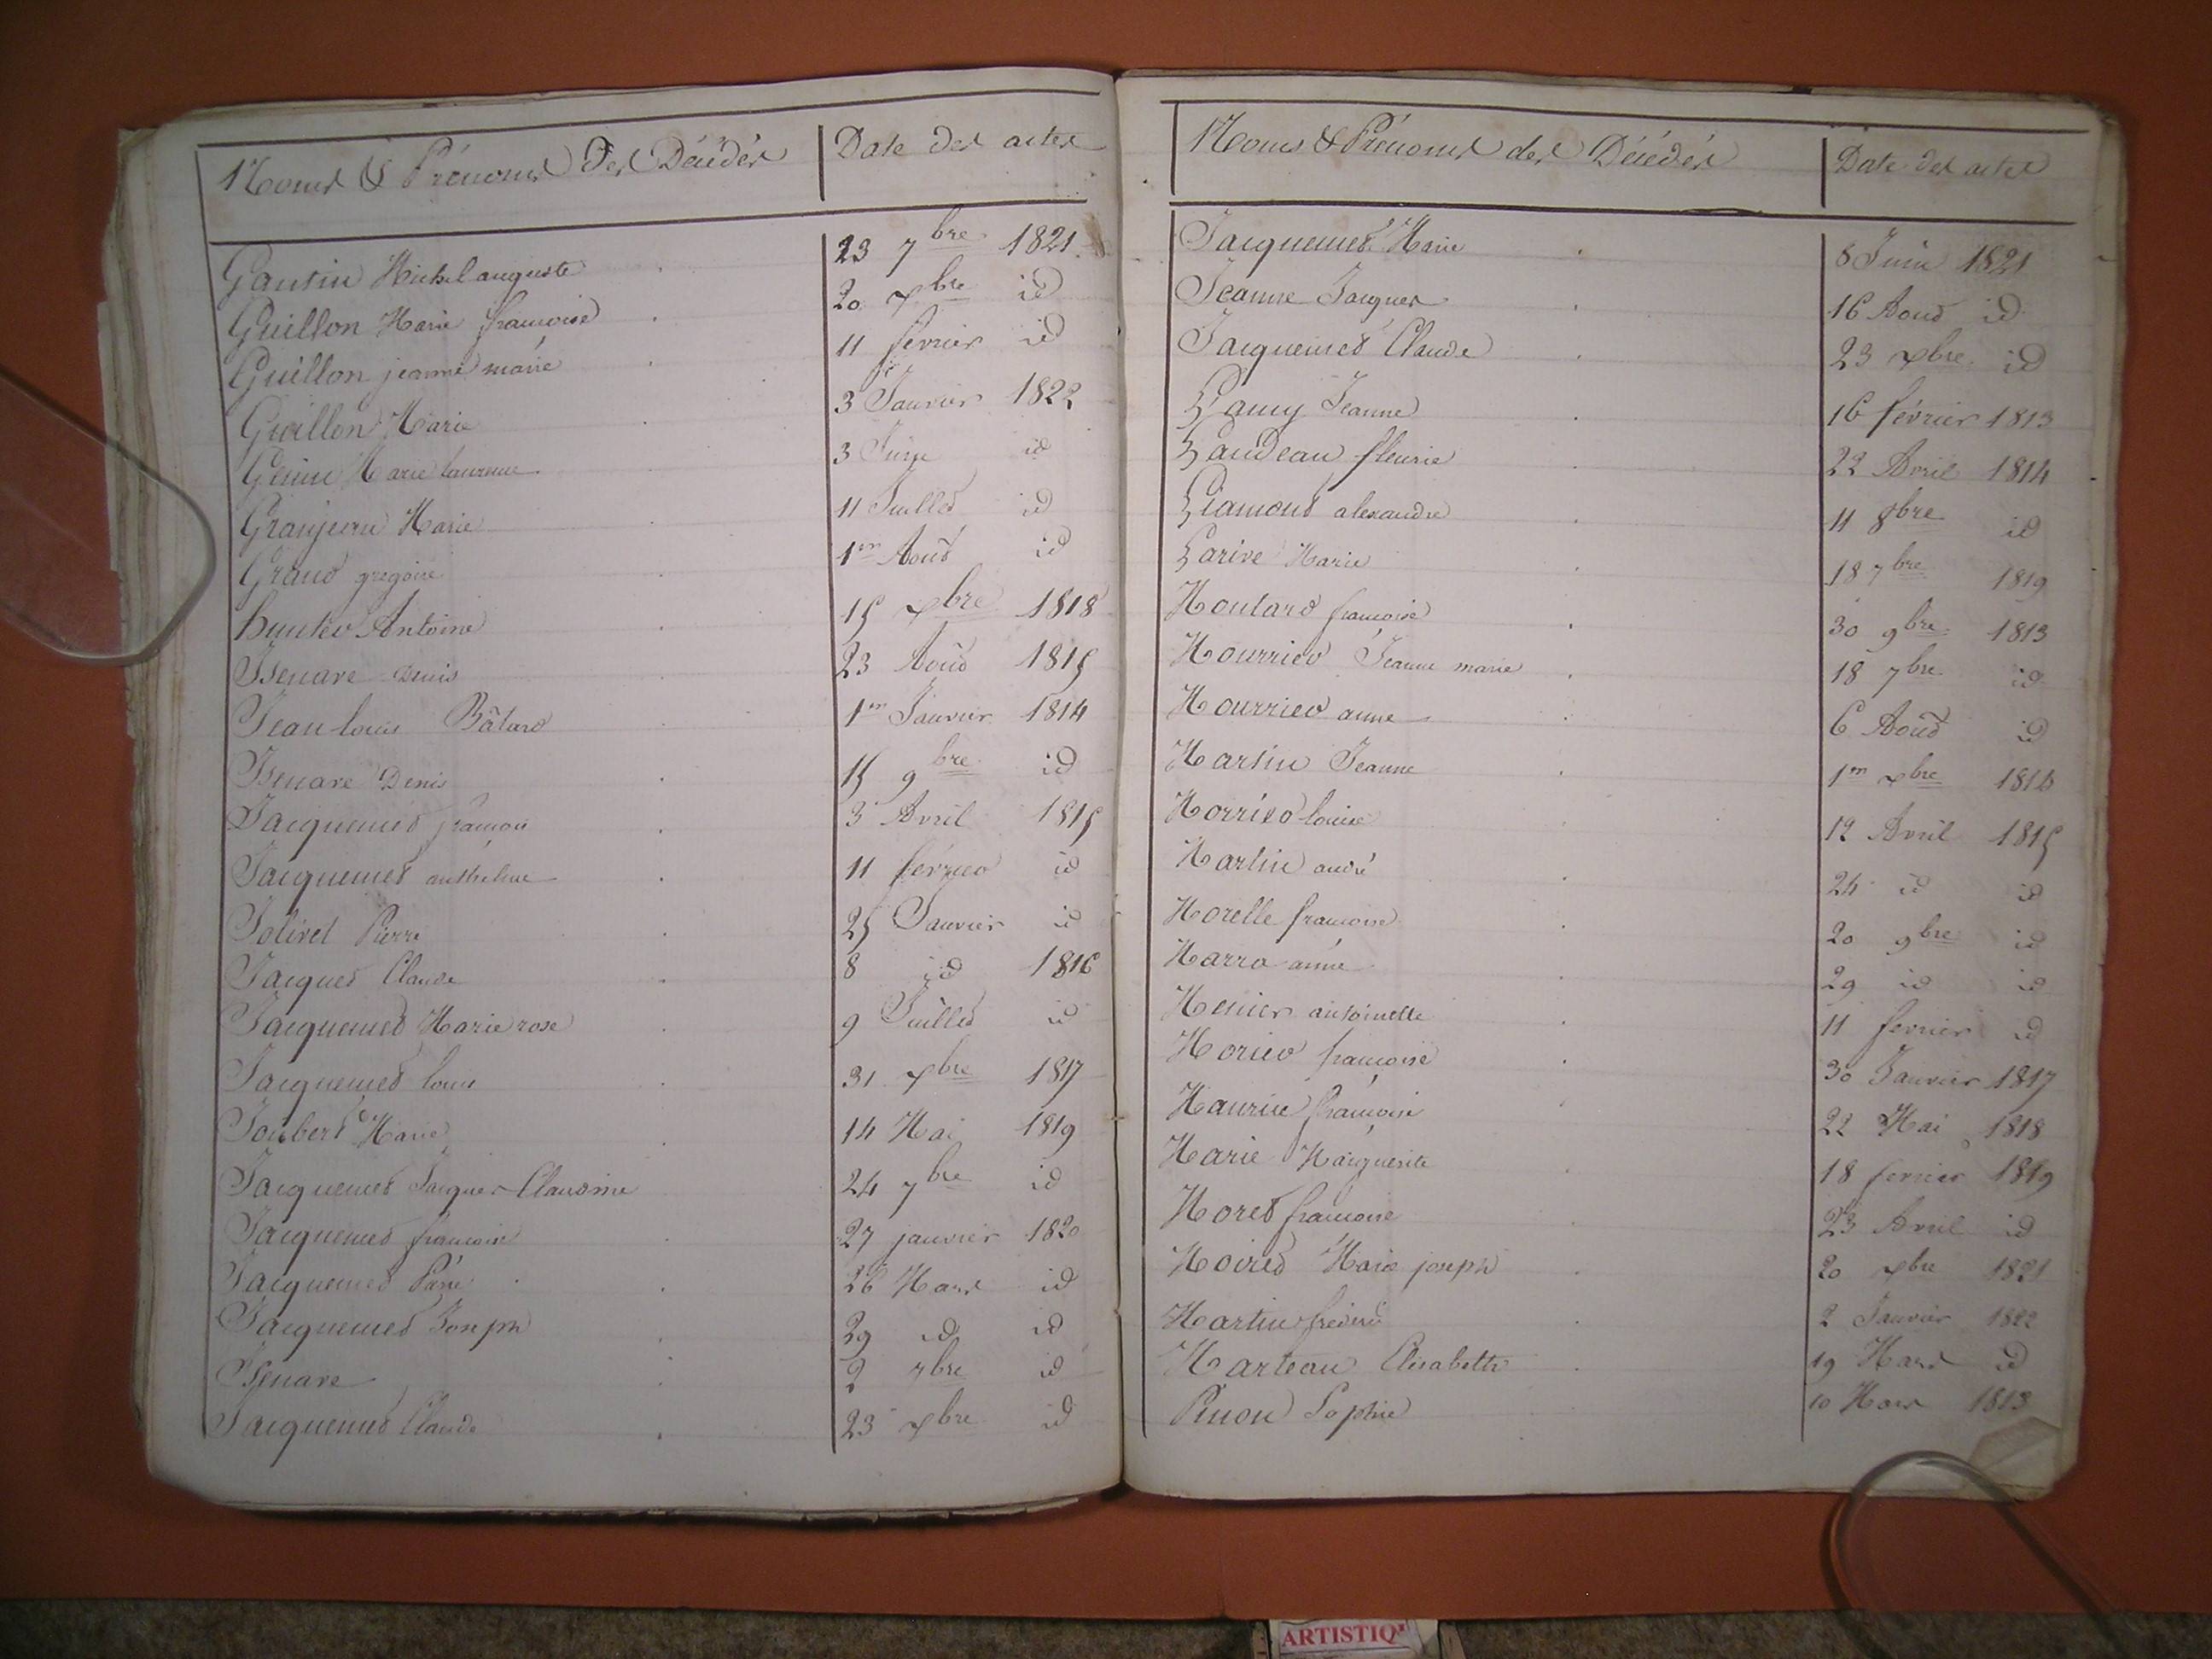 Noms & Prénoms des Décédés Date des actes
Gautin Michel auguste 23 7bre 1821
Guillon Marie francoise 20 xbre id
Guillon jeanne marie 11 fevrier id
Guillon Marie 3 Janvier 1822
Genin Marie laurence 3 Juin id
Granjean Marie 11 Juillet id
Grand gregoire 1er Août id
Antoine 15 xbre 1818
Isenare Denis 23 Août 1815
Jean louis Bâtard 1er Janvier 1814
Isenare Denis 15 9bre id
Jacquemet francois 3 Avril 1815
Jacquemet anthelme 11 fevrier id
Jolivet Pierre 25 Janvier id
Jacquet Claude 8 id 1816
Jacquemet Marie rose 9 Juillet id
Jacquemet louis 31 xbre 1817
Joubert Marie 14 Mai 1819
Jacquemet Jacques Claudine 24 7bre id
Jacquemet francoise 27 janvier 1820
Jacquemet 26 Mars id
Jacquemet Joseph 29 id id
Isenare 2 7bre id
Jacquemet Claude 23 xbre id
Noms & Prénoms des Décédés Date des actes
Jacquemet Marie 8 Juin 1821
Jeanne Jacques 16 Aout id
Jacquemet Claude 23 xbre id
Lamy Jeanne 16 février 1813
Landeau fleurie 22 Avril 1814
Liamont alexandre 11 8bre id
Larive Marie 18 7bre 1819
Moutard francoise 30 9bre 1813
Mourrier Jeanne marie 18 7bre id
Mourrier anne 6 Aout id
Martin Jeanne 1er xbre 1814
Morrier louise 12 Avril 1815
Martin andré 24 id id
Morelle francoise 20 9bre id
Marra anne 29 id id
Menier antoinette 11 fevrier id
Morier francoise 30 Janvier 1817
Maurin francois 22 Mai 1818
Marie Marguerite 18 fevrier 1819
Moret francoise 23 Avril id
Moiret Marie joseph 20 xbre 1821
Martin frederic 2 Janvier 1822
Marteau Elisabeth 19 Mars id
Pinon Sophie 10 Mars 1813
ARTISTIQ